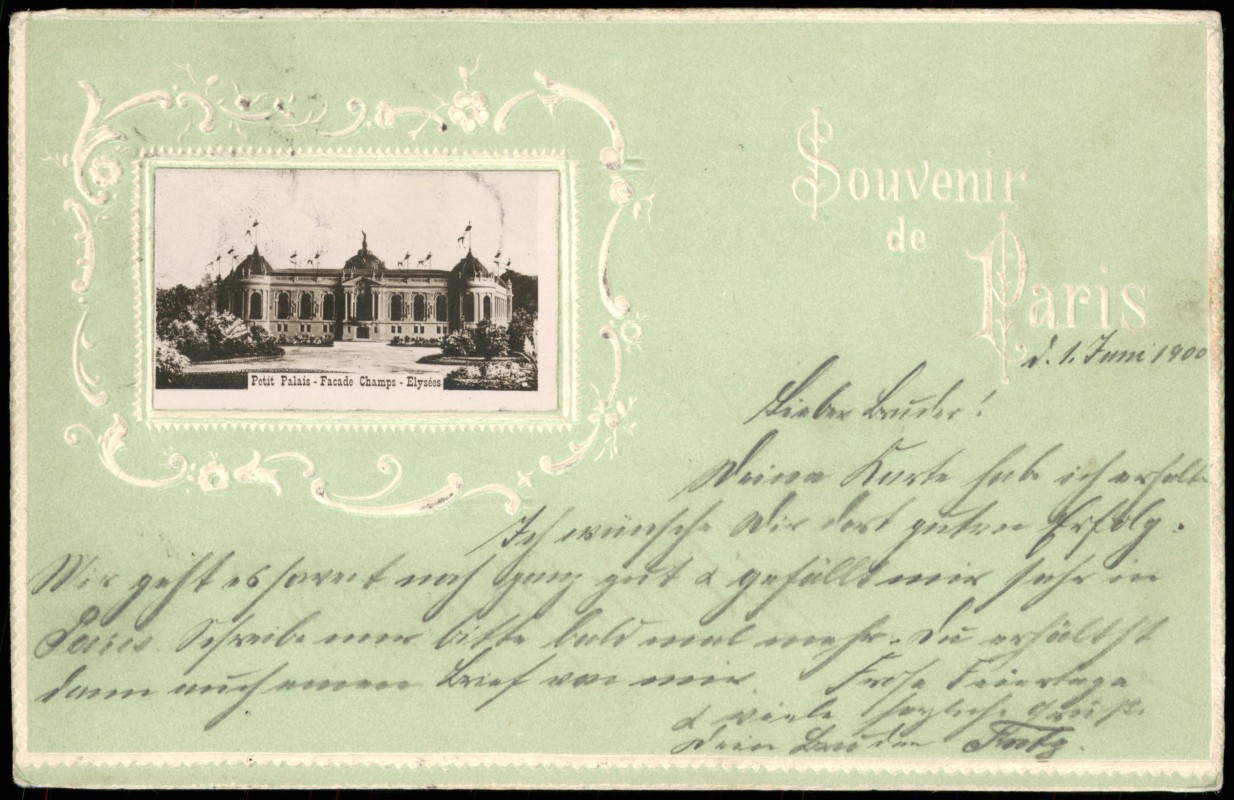 Souvenir
de
Paris
Petit Palais - Facade Champs - Elysées
d. 1. Juni 1900
Lieber Bruder!
Deine Karte habe ich erhalt.
Ich wünsche Dir dort guten Erfolg.
Mir geht es soweit noch ganz gut & gefällt mir sehr in
Paris. Schreibe mir bitte bald mal mehr. Du erhältst
dann auch einen Brief von mir. Frohe Feiertage
& viele herzliche Grüße
Dein Bruder Fritz.